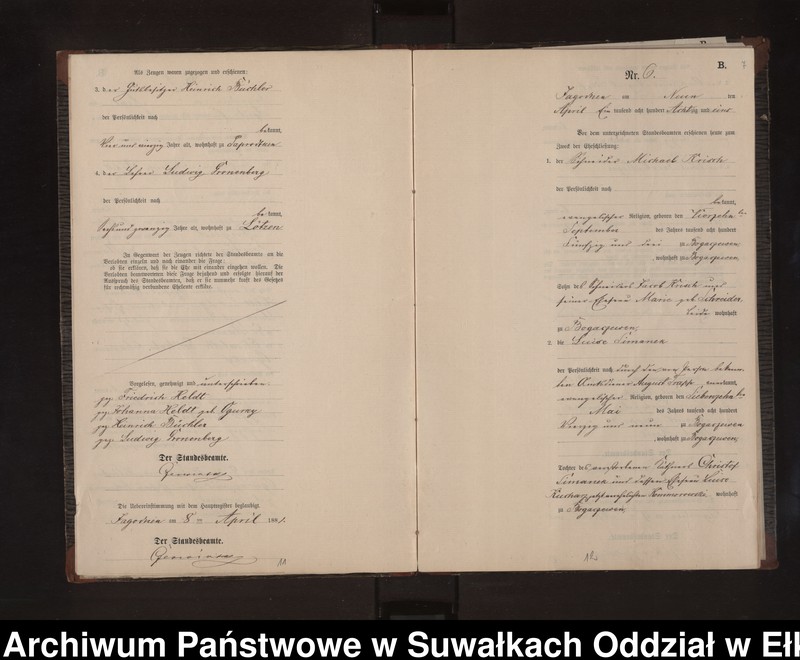 Als Zeugen waren zugezogen und erschienen:
3. der Gutsbesitzer Heinrich Büchler
der Persönlichkeit nach
bekannt,
Vier und vierzig Jahre alt, wohnhaft zu
4. der Lehrer Ludwig Cronenberg
der Persönlichkeit nach
bekannt,
Sechs und zwanzig Jahre alt, wohnhaft zu Lötzen
In Gegenwart der Zeugen richtete der Standesbeamte an die
Verlobten einzeln und nach einander die Frage:
ob sie erklären, daß sie die Ehe mit einander eingehen wollen. Die
Verlobten beantworteten diese Frage bejahend und erfolgte hierauf der
Ausspruch des Standesbeamten, daß er sie nunmehr kraft des Gesetzes
für rechtmäßig verbundene Eheleute erkläre.
Vorgelesen, genehmigt und unterschrieben
gez. Friedrich Holdt
gez. Johanna Holdt geb.
gez. Heinrich Büchler
gez. Ludwig Cronenberg
Der Standesbeamte.
Die Uebereinstimmung mit dem Hauptregister beglaubigt.
am 8ten April 1881.
Der Standesbeamte.
11
B.
Nr. 6.
am Neun ten
April Ein tausend acht hundert Achtzig und eins
Vor dem unterzeichneten Standesbeamten erschienen heute zum
Zweck der Eheschließung:
1. der Schneider Michael Krisch
der Persönlichkeit nach
bekannt,
evangelischer Religion, geboren den Vierzehnten
September des Jahres tausend acht hundert
Fünfzig und drei zu Bogaczewen
, wohnhaft zu Bogaczewen
Sohn des Schneiders Jacob Krisch und
seiner Ehefrau Marie geb. Schneider
beide wohnhaft
zu Bogaczewen
2. die Luise Simanek
der Persönlichkeit nach durch den von Person bekann-
ten Amtsdiener August anerkannt,
evangelischer Religion, geboren den Siebenzehnten
Mai des Jahres tausend acht hundert
Vierzig und neun zu Bogaczewen
, wohnhaft zu Bogaczewen
Tochter des verstorbenen Christof
Simanek und dessen Ehefrau Luise
wohnhaft
zu Bogaczewen
12
Archiwum Państwowe w Suwałkach Oddział w Ełk